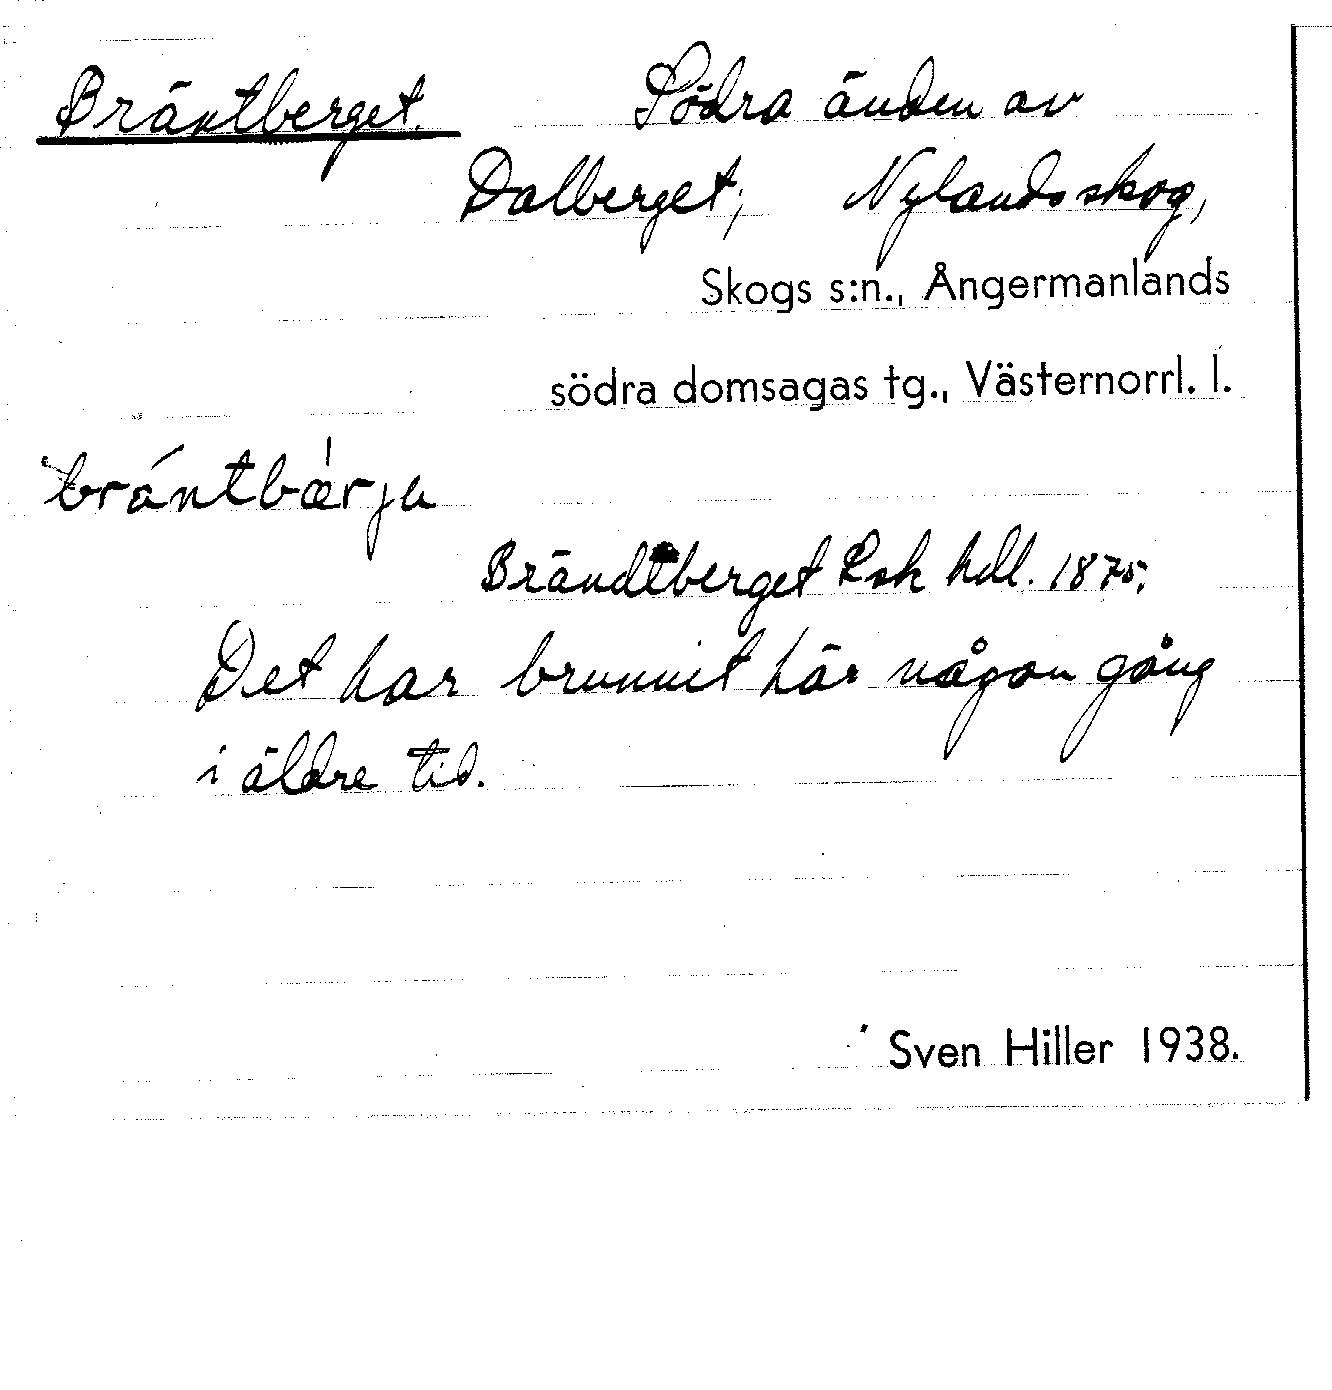 Bräntberget. Södra änden av
Dalberget, Nylandsskog,
Skogs s:n., Ångermanlands
södra domsagas tg., Västernorrl. l.
brántbǽrja
Brändtberget Lsk hdl. 1875;
Det har brunnit här någon gång
i äldre tid.
Sven Hiller 1938.